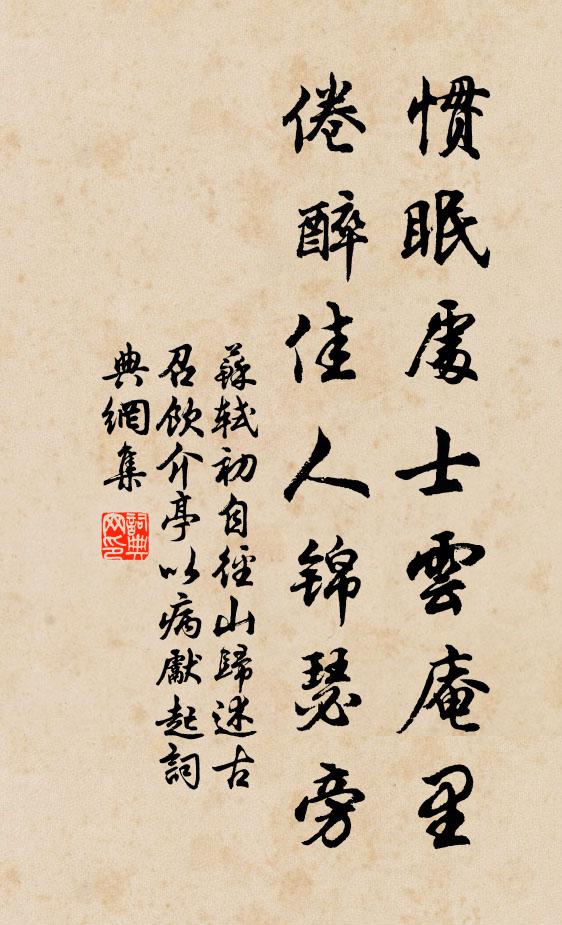 慣眠處士雲庵里
倦醉佳人锦瑟旁
蘇軾初自徑山歸述古
召飲介亭以病獻起詞
典網集
詞典
网印